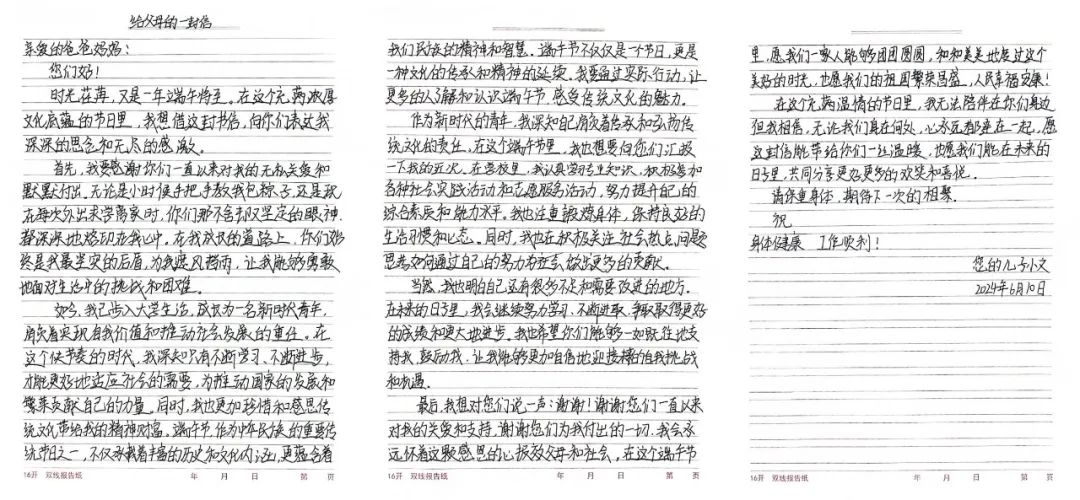 给父母的一封信
亲爱的爸爸妈妈：
您们好！
时光荏苒，又是一年端午将至。在这个充满浓厚
文化底蕴的节日里，我想借这封书信，向你们表达我
深深的思念和无尽的感激。
首先，我要感谢你们一直以来对我的无私关爱和
默默付出。无论是小时候手把手教我包粽子，还是现
在每次外出求学离家时，你们那不舍却又坚定的眼神，
都深深地烙印在我心中。在我成长的道路上，你们始
终是我最坚实的后盾，为我遮风挡雨，让我能够勇敢
地面对生活中的挑战和困难。
如今，我已步入大学生活，成长为一名新时代青年，
肩负着实现自我价值和推动社会发展的重任。在
这个快节奏的时代，我深知只有不断学习、不断进步，
才能更好地适应社会的需要，为推动国家的发展和
繁荣贡献自己的力量。同时，我也更加珍惜和感恩传
统文化带给我的精神财富。端午节作为中华民族的重要传
统节日之一，不仅承载着丰富的历史和文化内涵，更蕴含着
16开 双线报告纸 年 月 日 第 页
我们民族的精神和智慧。端午节不仅仅是一个节日，更是
一种文化的传承和精神的延续。我要通过实际行动，让
更多的人了解和认识端午节，感受传统文化的魅力。
作为新时代的青年，我深知自己肩负着传承和弘扬传
统文化的责任。在这个端午节里，我也想要向您们汇报
一下我的近况。在学校里，我认真学习专业知识，积极参加
各种社会实践活动和志愿服务活动，努力提升自己的
综合素质和能力水平。我也注重锻炼身体，保持良好的
生活习惯和心态。同时，我也在积极关注社会热点问题，
思考如何通过自己的努力为社会做出更多的贡献。
当然，我也明白自己还有很多不足和需要改进的地方。
在未来的日子里，我会继续努力学习，不断进取，争取取得更好
的成绩和更大地进步。我也希望你们能够一如既往地支
持我、鼓励我，让我能够更加自信地迎接接的自我挑战
和机遇。
最后，我想对您们说一声：谢谢！谢谢您们一直以来
对我的关爱和支持，谢谢您们为我付出的一切。我会永
远怀着这颗感恩的心，报效父母和社会。在这个端午节
16开 双线报告纸 年 月 日 第 页
里，愿我们一家人能够团团圆圆，和和美美地度过这个
美好的时光，也愿我们的祖国繁荣昌盛，人民幸福安康！
在这个充满温情的节日里，我无法陪伴在你们身边，
但我相信，无论我们身在何处，心永远都连在一起。愿
这封信能带给你们一丝温暖，也愿我们能在未来的
日子里，共同分享更好更多的欢笑和喜悦。
请保重身体，期待下一次的相聚。
祝
身体健康 工作顺利！
您的儿子小文
2024年6月10日
16开 双线报告纸 年 月 日 第 页